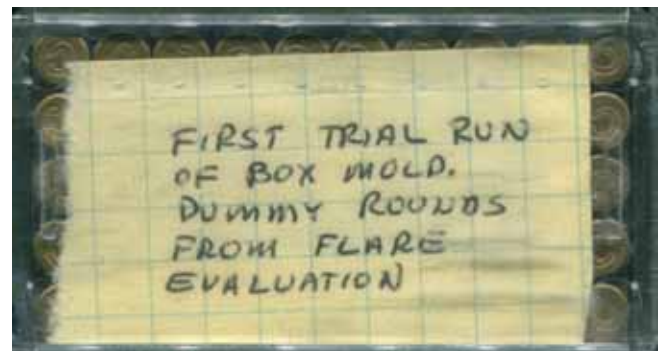 FIRST TRIAL RUN
OF BOX MOLD.
DUMMY ROUNDS
FROM FLARE
EVALUATION